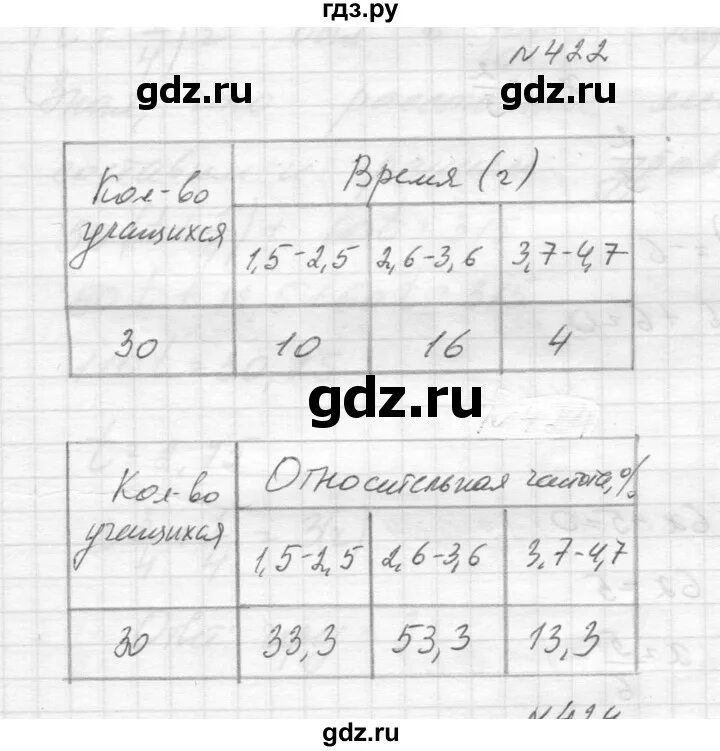 гдз.ру
N422
gdz.ru gdz.ru
Кол-во учащихся
Время (г)
1,5-2,5 2,6-3,6 3,7-4,7
30 10 16 4
gdz.ru
Кол-во учащихся
Относительная частота, %
1,5-2,5 2,6-3,6 3,7-4,7
30 33,3 53,3 13,3
gdz.ru